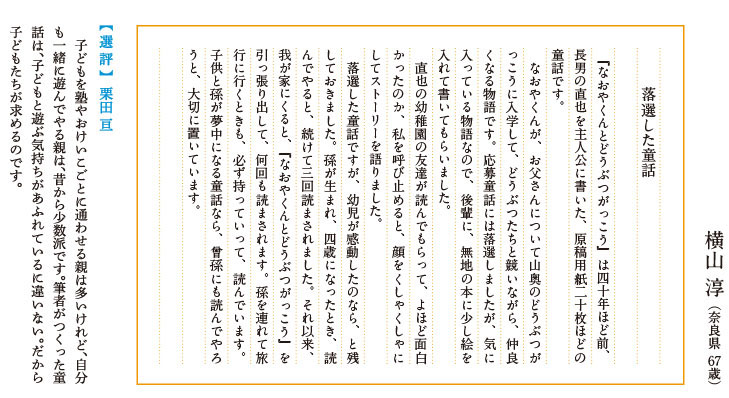 横山 淳(奈良県 67歳)
落選した童話
『なおやくんとどうぶつがっこう』は四十年ほど前、
長男の直也を主人公に書いた、原稿用紙二十枚ほどの
童話です。
なおやくんが、お父さんについて山奥のどうぶつが
っこうに入学して、どうぶつたちと競いながら、仲良
くなる物語です。応募童話には落選しましたが、気に
入っている物語なので、後輩に、無地の本に少し絵を
入れて書いてもらいました。
直也の幼稚園の友達が読んでもらって、よほど面白
かったのか、私を呼び止めると、顔をくしゃくしゃに
してストーリーを語りました。
落選した童話ですが、幼児が感動したのなら、と残
しておきました。孫が生まれ、四歳になったとき、読
んでやると、続けて三回読まされました。それ以来、
我が家にくると、『なおやくんとどうぶつがっこう』を
引っ張り出して、何回も読まされます。孫を連れて旅
行に行くときも、必ず持っていって、読んでいます。
子供と孫が夢中になる童話なら、曾孫にも読んでやろ
うと、大切に置いています。
【選評】 栗田 亘
子どもを塾やおけいこごとに通わせる親は多いけれど、自分
も一緒に遊んでやる親は、昔から少数派です。筆者がつくった童
話は、子どもと遊ぶ気持ちがあふれているに違いない。だから
子どもたちが求めるのです。